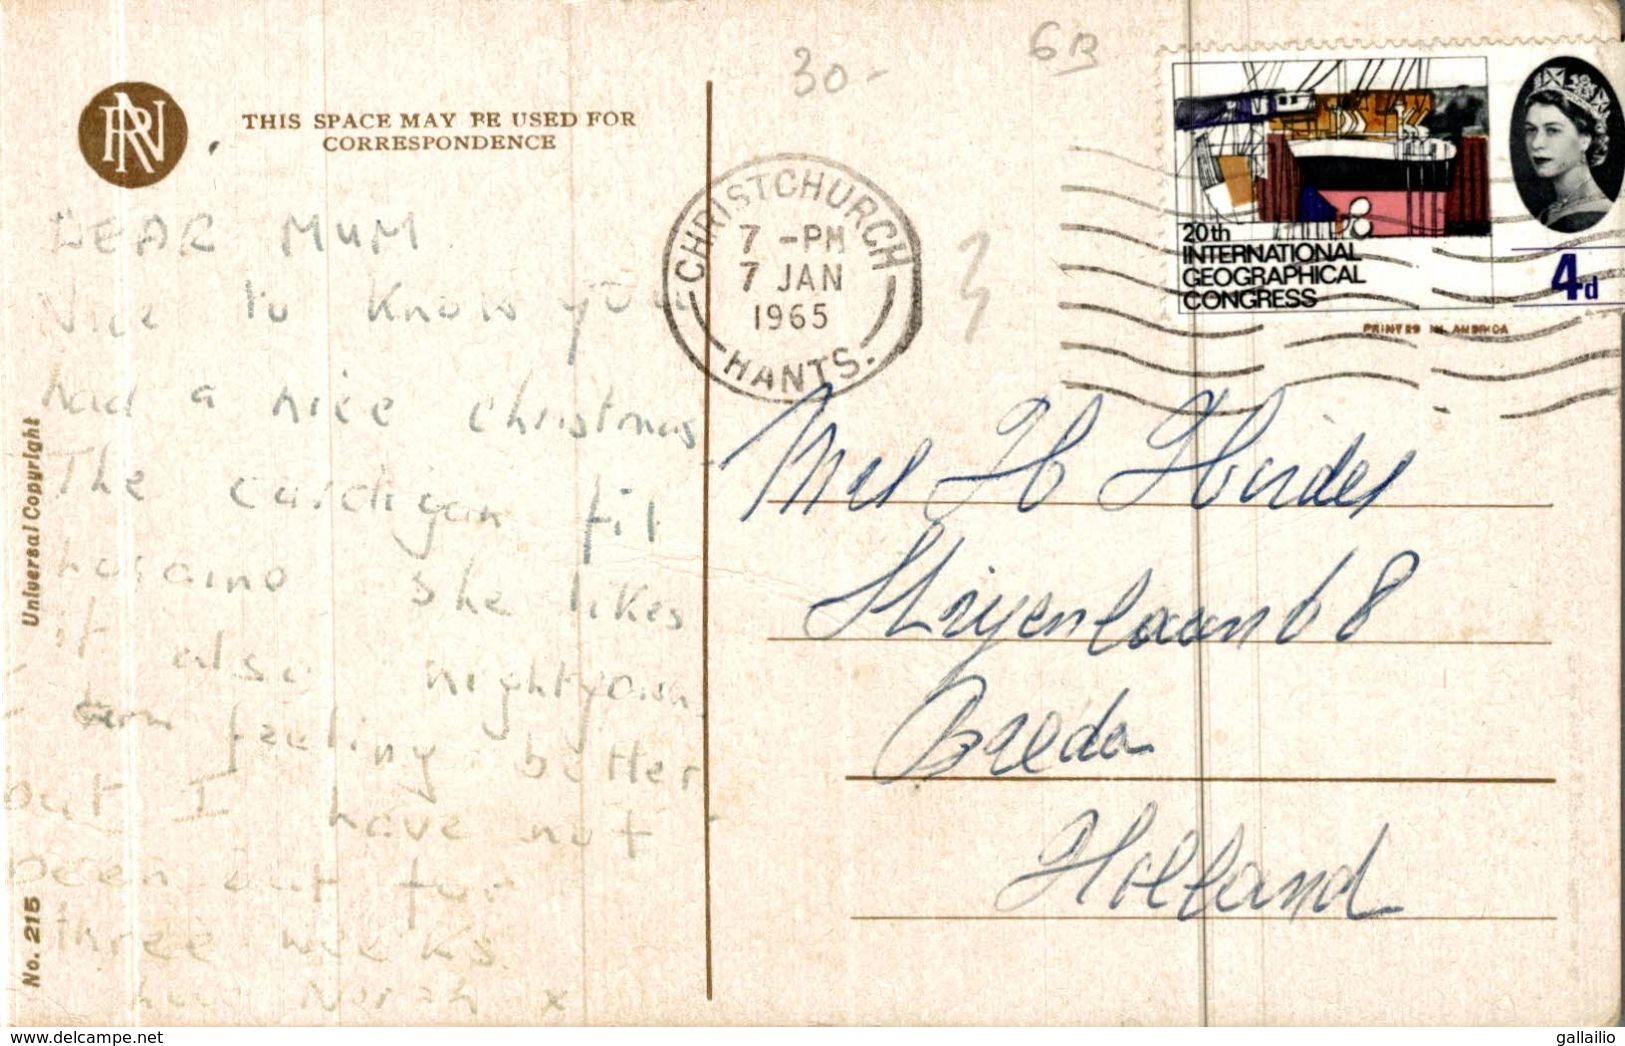 30-
6B
RN
THIS SPACE MAY BE USED FOR
CORRESPONDENCE
CHRISTCHURCH
7 -PM
7 JAN
1965
HANTS.
20th
INTERNATIONAL
GEOGRAPHICAL
CONGRESS
4d
PRINTED IN AMERICA
DEAR MUM
Nice to know you
had a nice christmas
The cardigan fit
she likes
it also nightgown
feeling better
but I have not
been out for
three weeks.
Norah x
Mrs H
68
Breda
Holland
Universal Copyright
No. 215
delcampe.net
gallailio